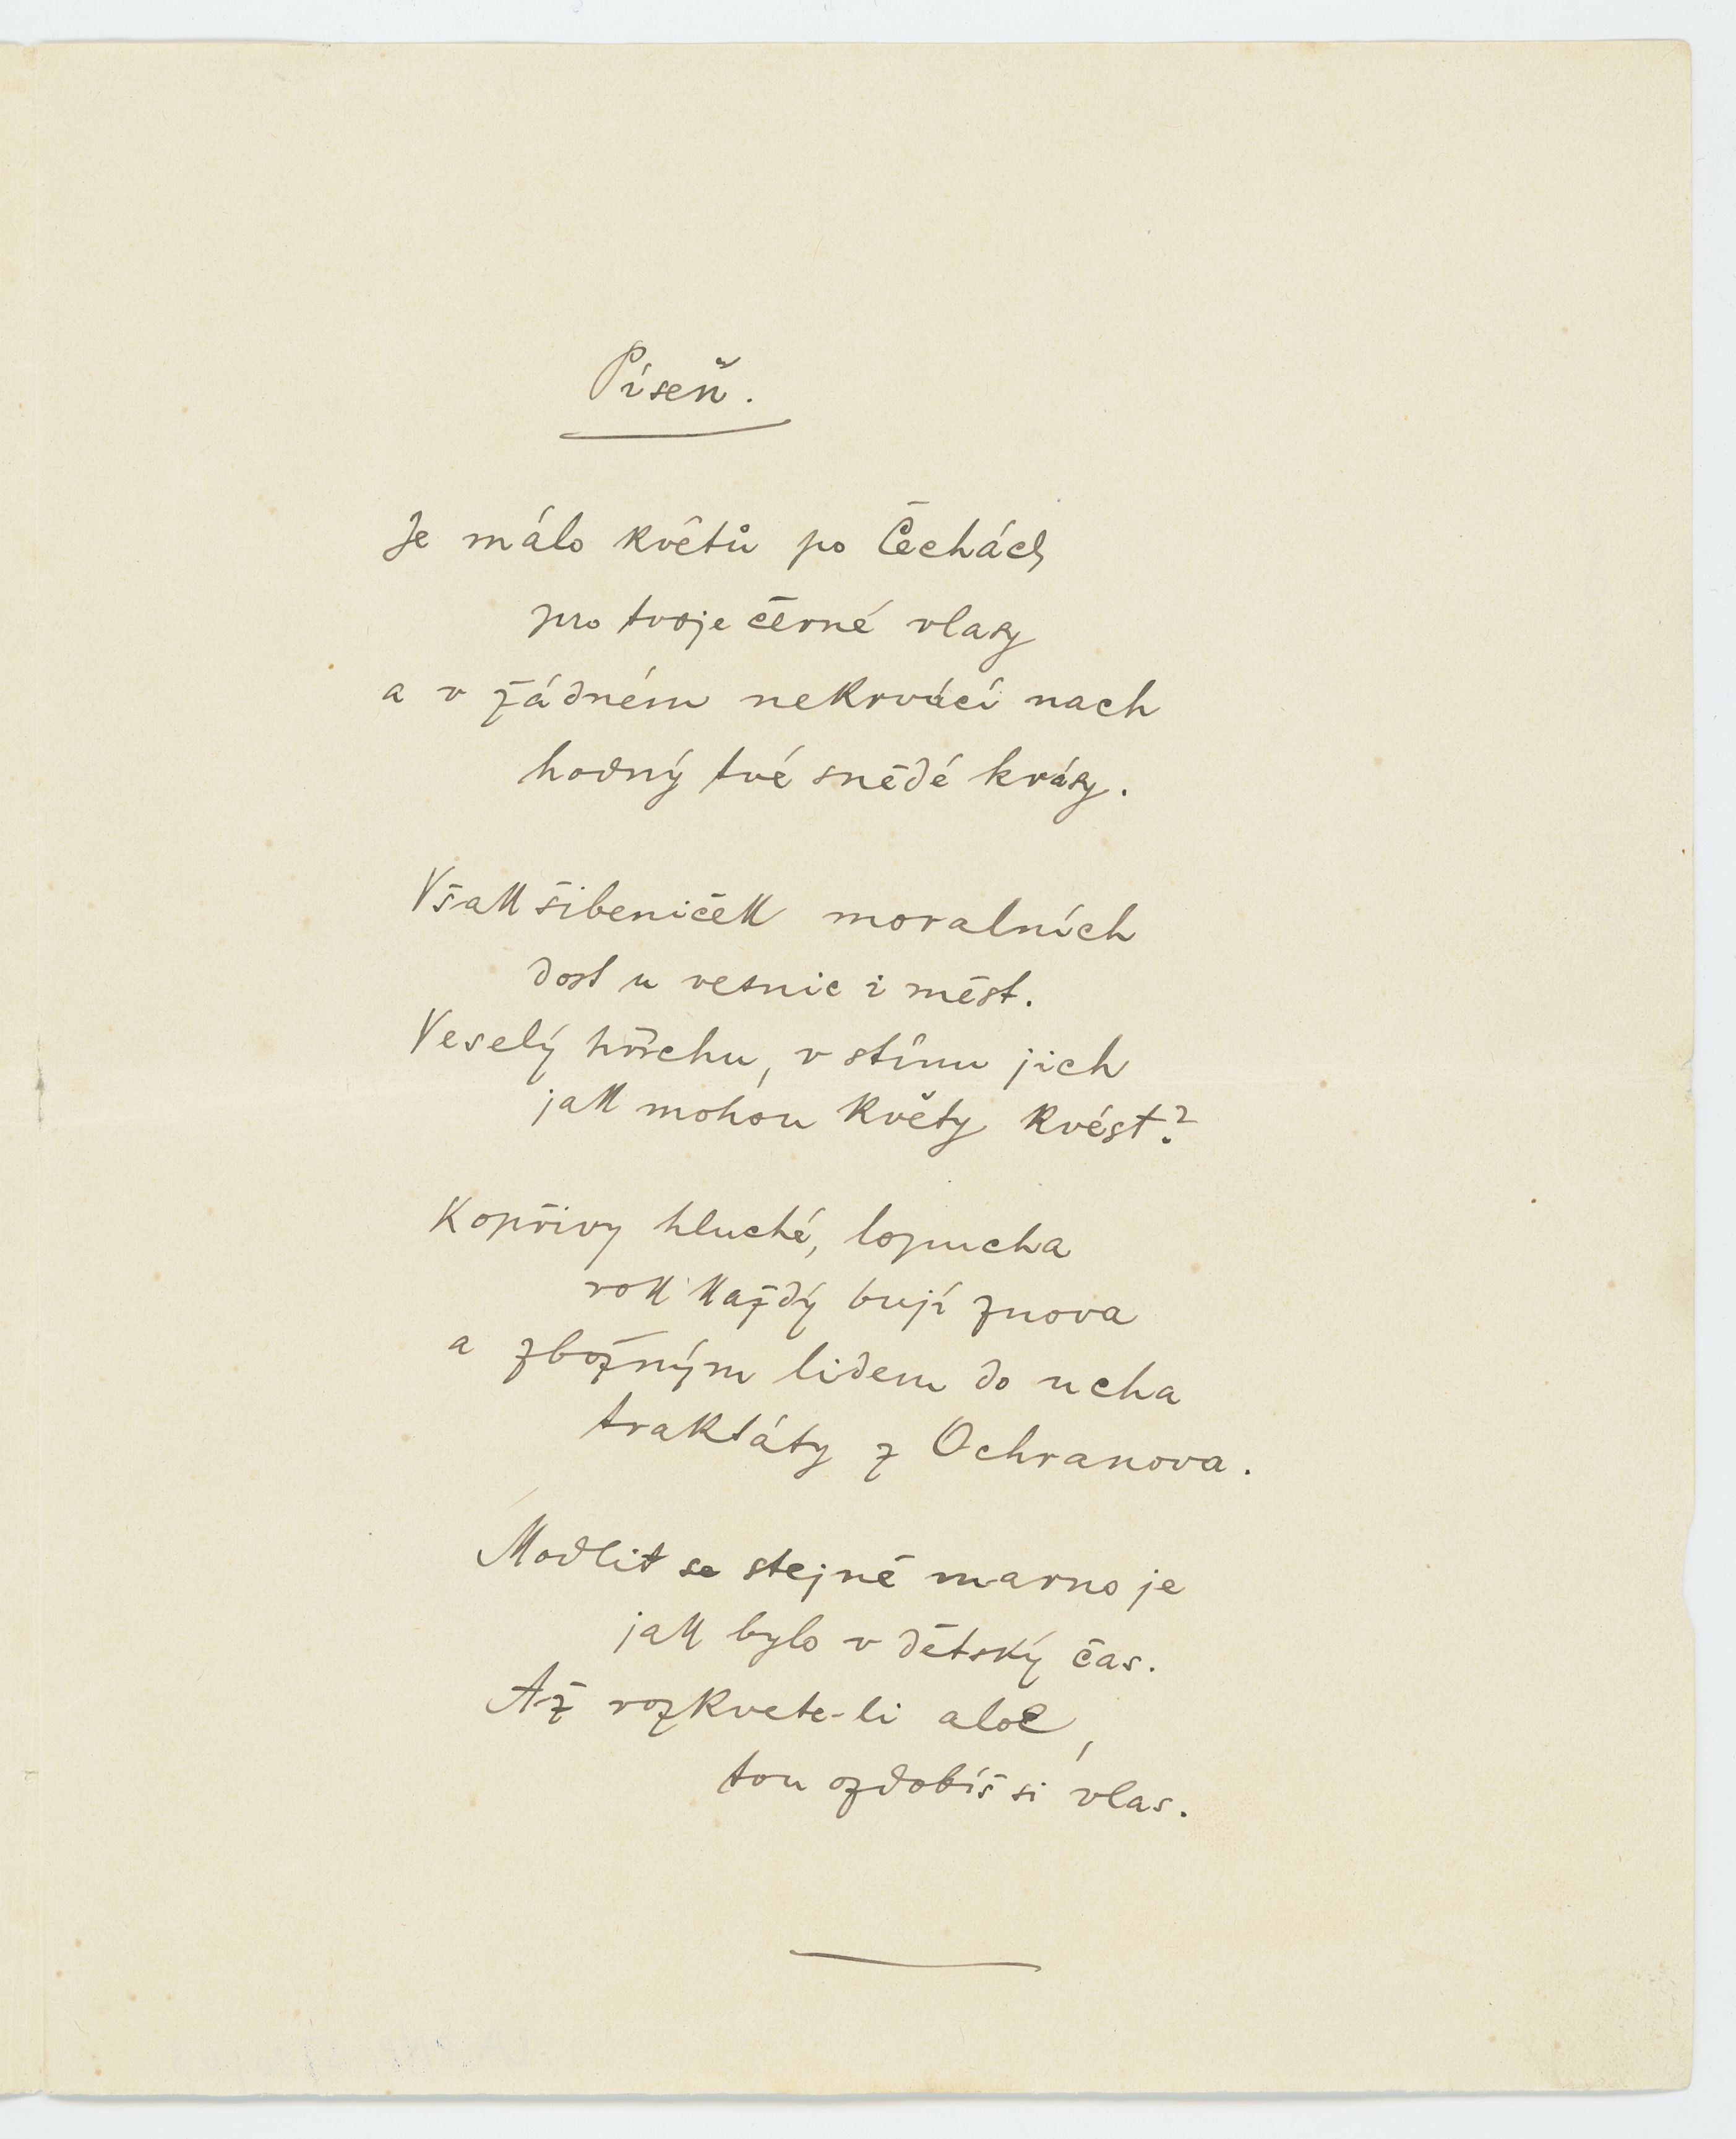 Píseň.
Je málo květů po Čechách
pro tvoje černé vlasy
a v žádném nekrvácí nach
hodný tvé snědé krásy.
Však šibeniček moralních
dost u vesnic i měst.
Veselý hříchu, v stínu jich
jak mohou květy kvést?
Kopřivy hluché, lopucha
rok každý bují znova
a zbožným lidem do ucha
traktáty z Ochranova.
Modlit se stejně marno je
jak bylo v dětský čas.
Až rozkvete-li aloe,
tou ozdobíš si vlas.